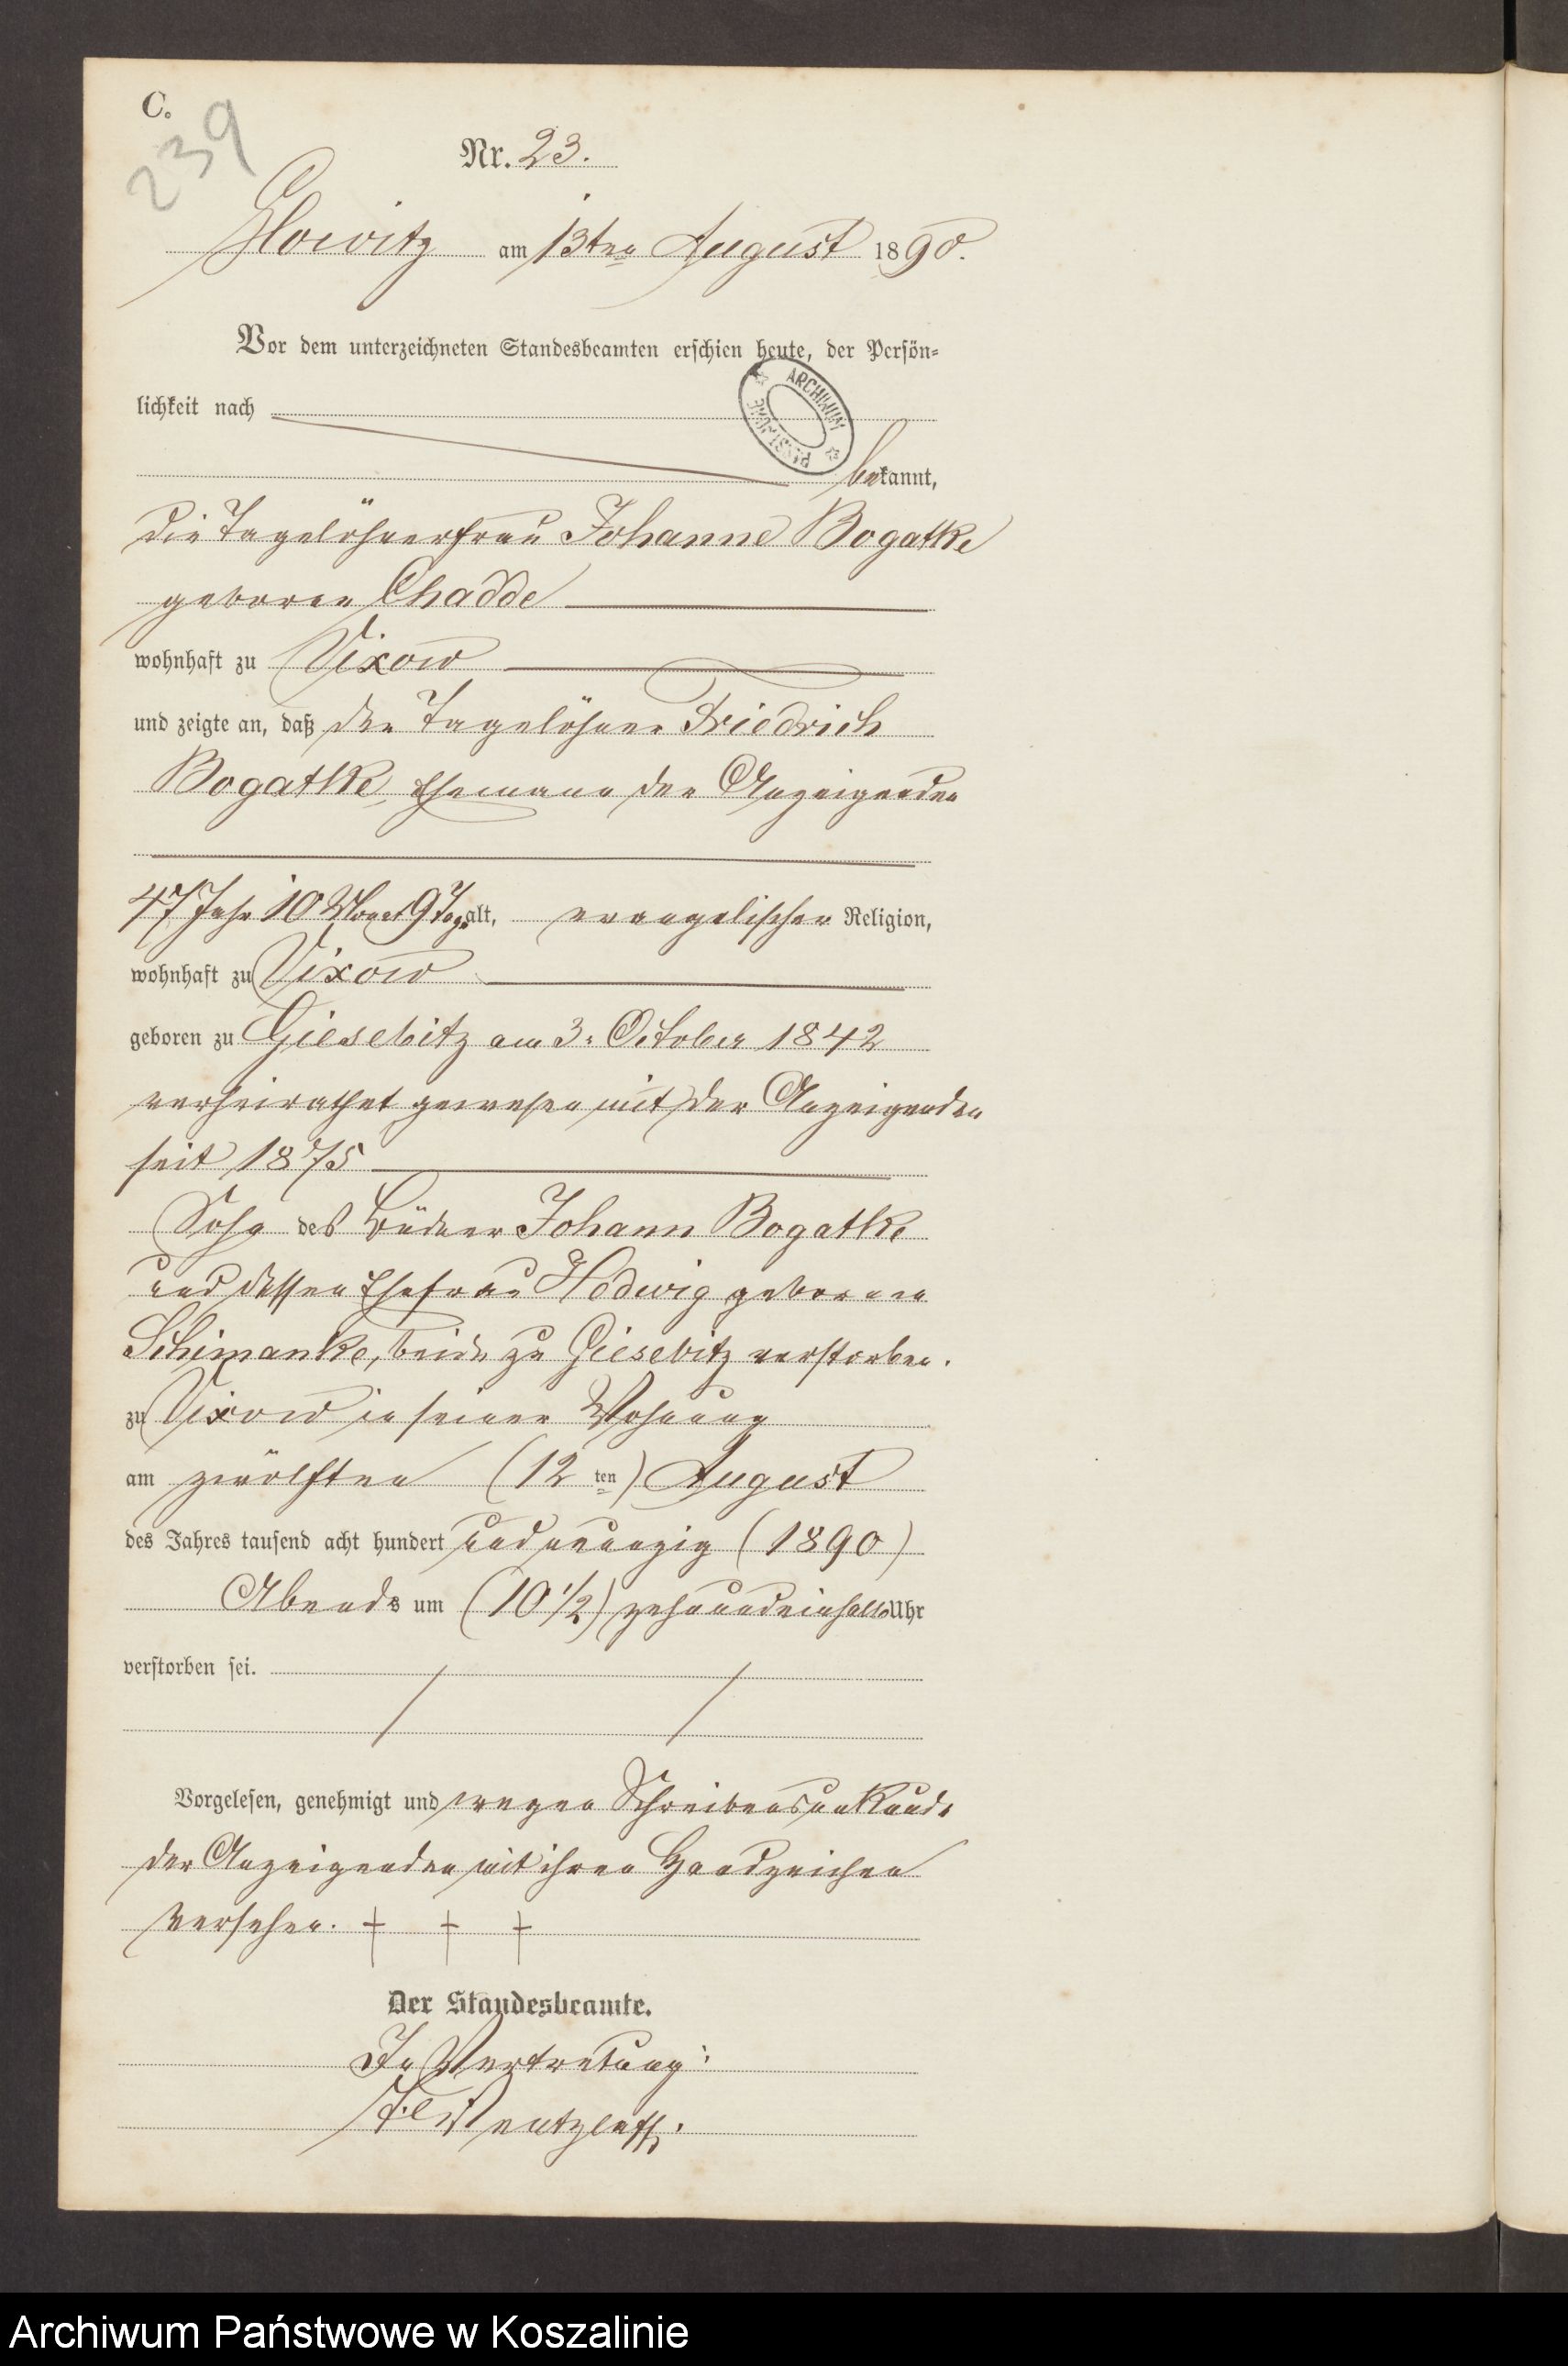 C.
239
Nr. 23.
Glowitz am 13ten August 1890.
Vor dem unterzeichneten Standesbeamten erschien heute, der Persön-
lichkeit nach
ARCHIWUM
bekannt,
die Tagelöhnerfrau Johanne Bogatke
geboren Chadde
wohnhaft zu Vixow
und zeigte an, daß der Tagelöhner Friedrich
Bogatke, Ehemann der Anzeigenden
47 Jahr 10 Monat 9 Tage alt, evangelischer Religion,
wohnhaft zu Vixow
geboren zu Giesebitz am 3. October 1842
verheirathet gewesen mit der Anzeigenden
seit 1875
Sohn des Büdner Johann Bogatke
und dessen Ehefrau Hedwig geborenen
Schimanke, beide zu Giesebitz verstorben.
zu Vixow in seiner Wohnung
am zwölften (12 ten) August
des Jahres tausend acht hundert und neunzig (1890)
Abends um (10 1/2) zehnundeinhalb Uhr
verstorben sei.
Vorgelesen, genehmigt und wegen Schreibensunkunde
der Anzeigenden mit ihren Handzeichen
versehen. + + +
Der Standesbeamte.
In Vertretung:
Wentzlaff.
Archiwum Państwowe w Koszalinie